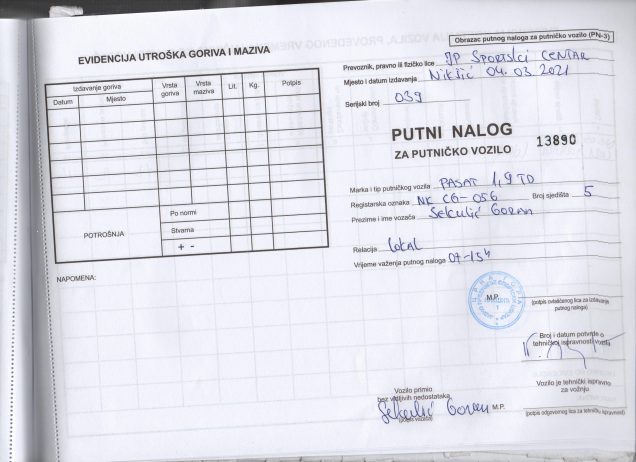 Obrazac putnog naloga za putničko vozilo (PN-3)
EVIDENCIJA UTROŠKA GORIVA I MAZIVA
Izdavanje goriva
Datum
Mjesto
Vrsta goriva
Vrsta maziva
Lit.
Kg.
Potpis
POTROŠNJA
Po normi
Stvarna
+ -
NAPOMENA:
Prevoznik, pravno ili fizičko lice JP SPORTSKI CENTAR
Mjesto i datum izdavanja Nikšić 04.03.2021
Serijski broj 039
PUTNI NALOG
ZA PUTNIČKO VOZILO
13890
Marka i tip putničkog vozila PASAT 1,9 TD
Registarska oznaka NK CG-056 Broj sjedišta 5
Prezime i ime vozača Sekulić Goran
Relacija Lokal
Vrijeme važenja putnog naloga 07-15h
M.P.
(potpis ovlašćenog lica za izdavanje
putnog naloga)
Broj i datum potvrde o
tehničkoj ispravnosti vozila
Vozilo primio
bez vidljivih nedostataka
Sekulić Goran M.P.
(potpis vozača)
Vozilo je tehnički ispravno
za vožnju
(potpis odgovornog lica za tehničku ispravnost)